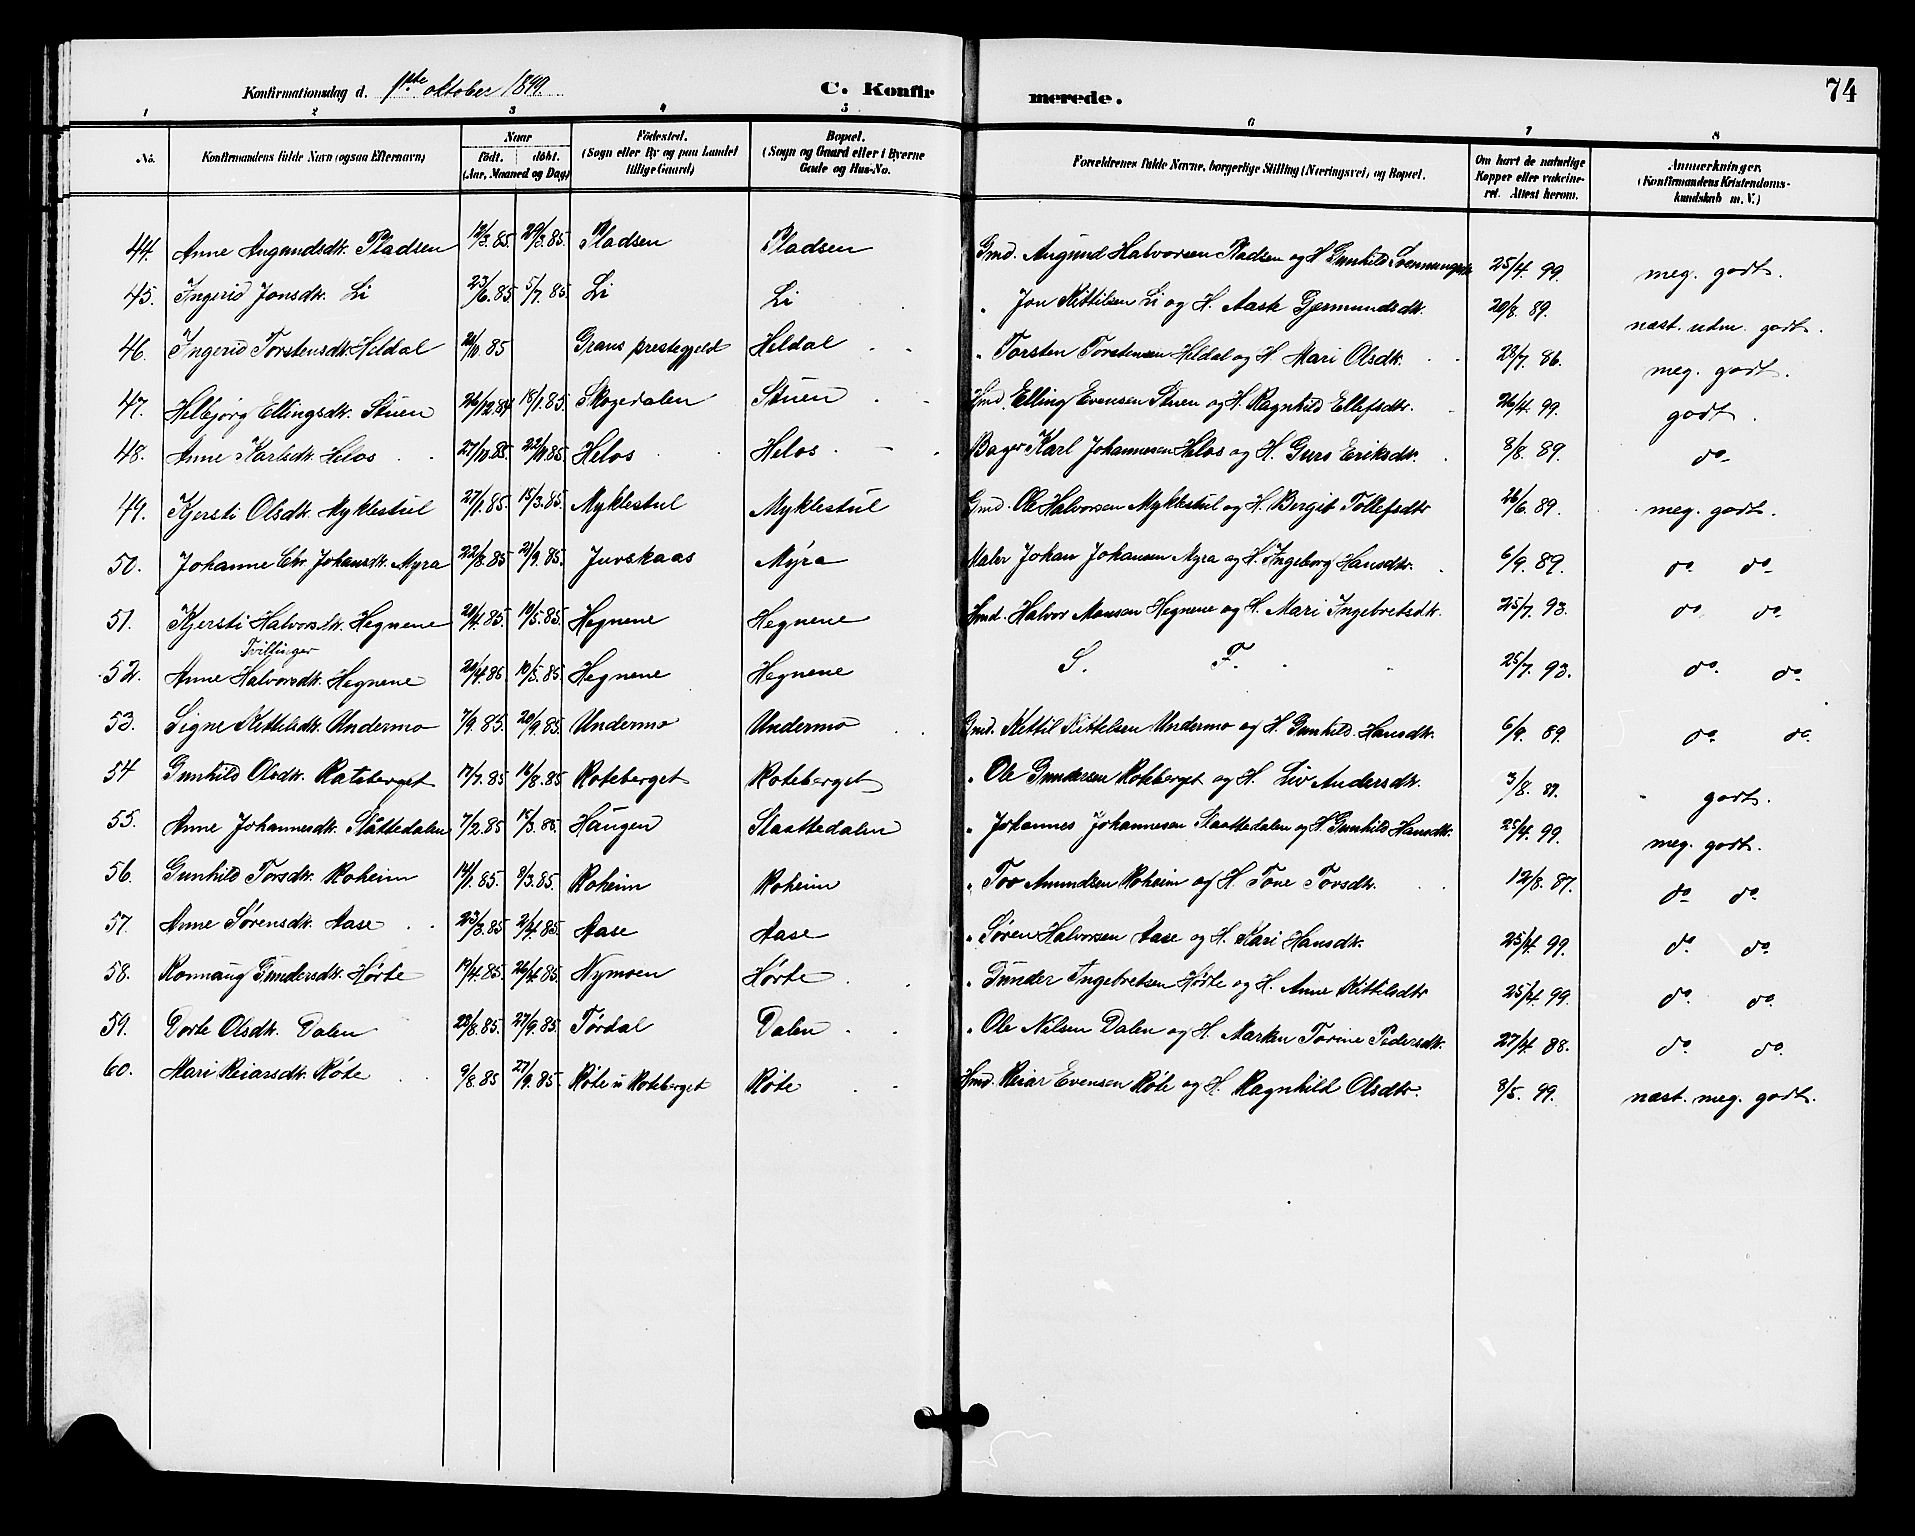 Konfirmationsdag d. 1ste oktober 1899.
C. Konfirmerede.
74
1 2 3 4 5 6 7 8
No.
Konfirmandens fulde Navn (ogsaa Efternavn)
Naar
födt. döbt.
(Aar, Maaned og Dag)
Födested.
(Sogn eller By og paa Landet
tillige Gaard)
Bopæl.
(Sogn og Gaard eller i Byerne
Gade og Hus-No.
Forældrenes fulde Navne, borgerlige Stilling (Næringsvei) og Bopæl.
Om havt de naturlige
Kopper eller vakcine-
ret. Attest herom.
Anmærkninger.
(Konfirmandens Kristendoms-
kundskab m. V.)
44. Anne Augundsdtr. Pladsen 12/3.85. 29/3.85. Pladsen Pladsen Gmd. Augund Halvorsen Pladsen og H. Gunhild 25/4. 99. meg. godt.
45. Ingerid Jonsdtr. Li 23/6.85 5/7.85. Li Li " Jon Kittilsen Li og H. Aase Gjermundsdtr. 20/8. 89. næst. udm. godt.
46. Ingerid Torstensdtr. Heldal 85 Grans prestegjeld Heldal " Torsten Torstensen Heldal og H. Mari Olsdtr. 23/7. 86. meg. godt.
47. Helbjörg Ellingsdtr. Stuen 26/12.84 18/1.85. Skogedalen Stuen Hmd. Elling Evensen Stuen og H. Ragnhild Ellefsdtr. 26/4. 99. godt.
48. Anne Karlsdtr. Helos 27/10.85. 22/11.85. Helos Helos Bager Karl Johannesen Helos og H. Guro Eriksdtr. 8/8. 89. do
49. Kjersti Olsdtr. Myklestul 27/1.85. 15/3.85. Myklestul Myklestul Gmd. Ole Halvorsen Myklestul og H. Bergit Tollefsdtr 26/6. 89. meg. godt.
50. Johanne Chr. Johansdtr. Myra 22/8.85 21/9.85. Juvskaas Myra Maler Johan Johansen Myra og H. Ingeborg Hansdtr. 6/9. 89. do do
51. Kjersti Halvorsdtr. Hegnene 20/4.85. 10/5.85. Hegnene Hegnene Hmd. Halvor Monsen Hegnene og H. Mari Ingebretsdtr. 25/7. 93. do do
Tvillinger
52. Anne Halvorsdtr. Hegnene 20/4.85. 10/5.85 Hegnene Hegnene S. F. 25/7. 93. do do.
53. Signe Kittilsdtr. Undermo 7/9.85. 20/9.85. Undermo Undermo Gmd. Kittil Kittelsen Undermo og H. Gunhild Hansdtr. 6/9. 89. do. do.
54 Gunhild Olsdtr. Rateberget 17/7.85 16/8.85 Roteberget Roteberget " Ole Gundersen Roteberget og H. Liv Andersdtr. 3/8. godt.
55. Anne Johannesdtr. Slåttedalen 7/2.85 15/3.85. Haugen Slaattedalen " Johannes Johannesen Slaattedalen og H. Gunhild Hansdtr. 25/4. 99. meg. godt.
56. Gunhild Torsdtr. Roheim 14/1.85. 8/3.85. Roheim Roheim " Tov Amundsen Roheim og H. Tone Tovsdtr. 12/8. 87. do do.
57. Anne Sörensdtr. Aase 23/3.85 2/4.85. Aase Aase " Sören Halvorsen Aase og H. Kari Hansdtr. 25/4. 99. do. do.
58. Ronnaug Gundersdtr. Hörte 19/4.85. 26/4.85. Nymoen Hörte " Gunder Ingebretsen Hörte og H. Anne Kittilsdtr 25/4. 99. do. do.
59. Dorte Olsdtr. Dalen 23/8.85. 27/9.85. Tördal Dalen " Ole Nilsen Dalen og H. Marken Torine Pedersdtr. 27/4. 88. do. do.
60. Mari Reiarsdtr. Röte 9/8.85 27/9.85. Röte u Roteberget Röte Hmd. Reiar Evensen Röte og H. Ragnhild Olsdtr. 8/5. 99. næst. meg. godt.